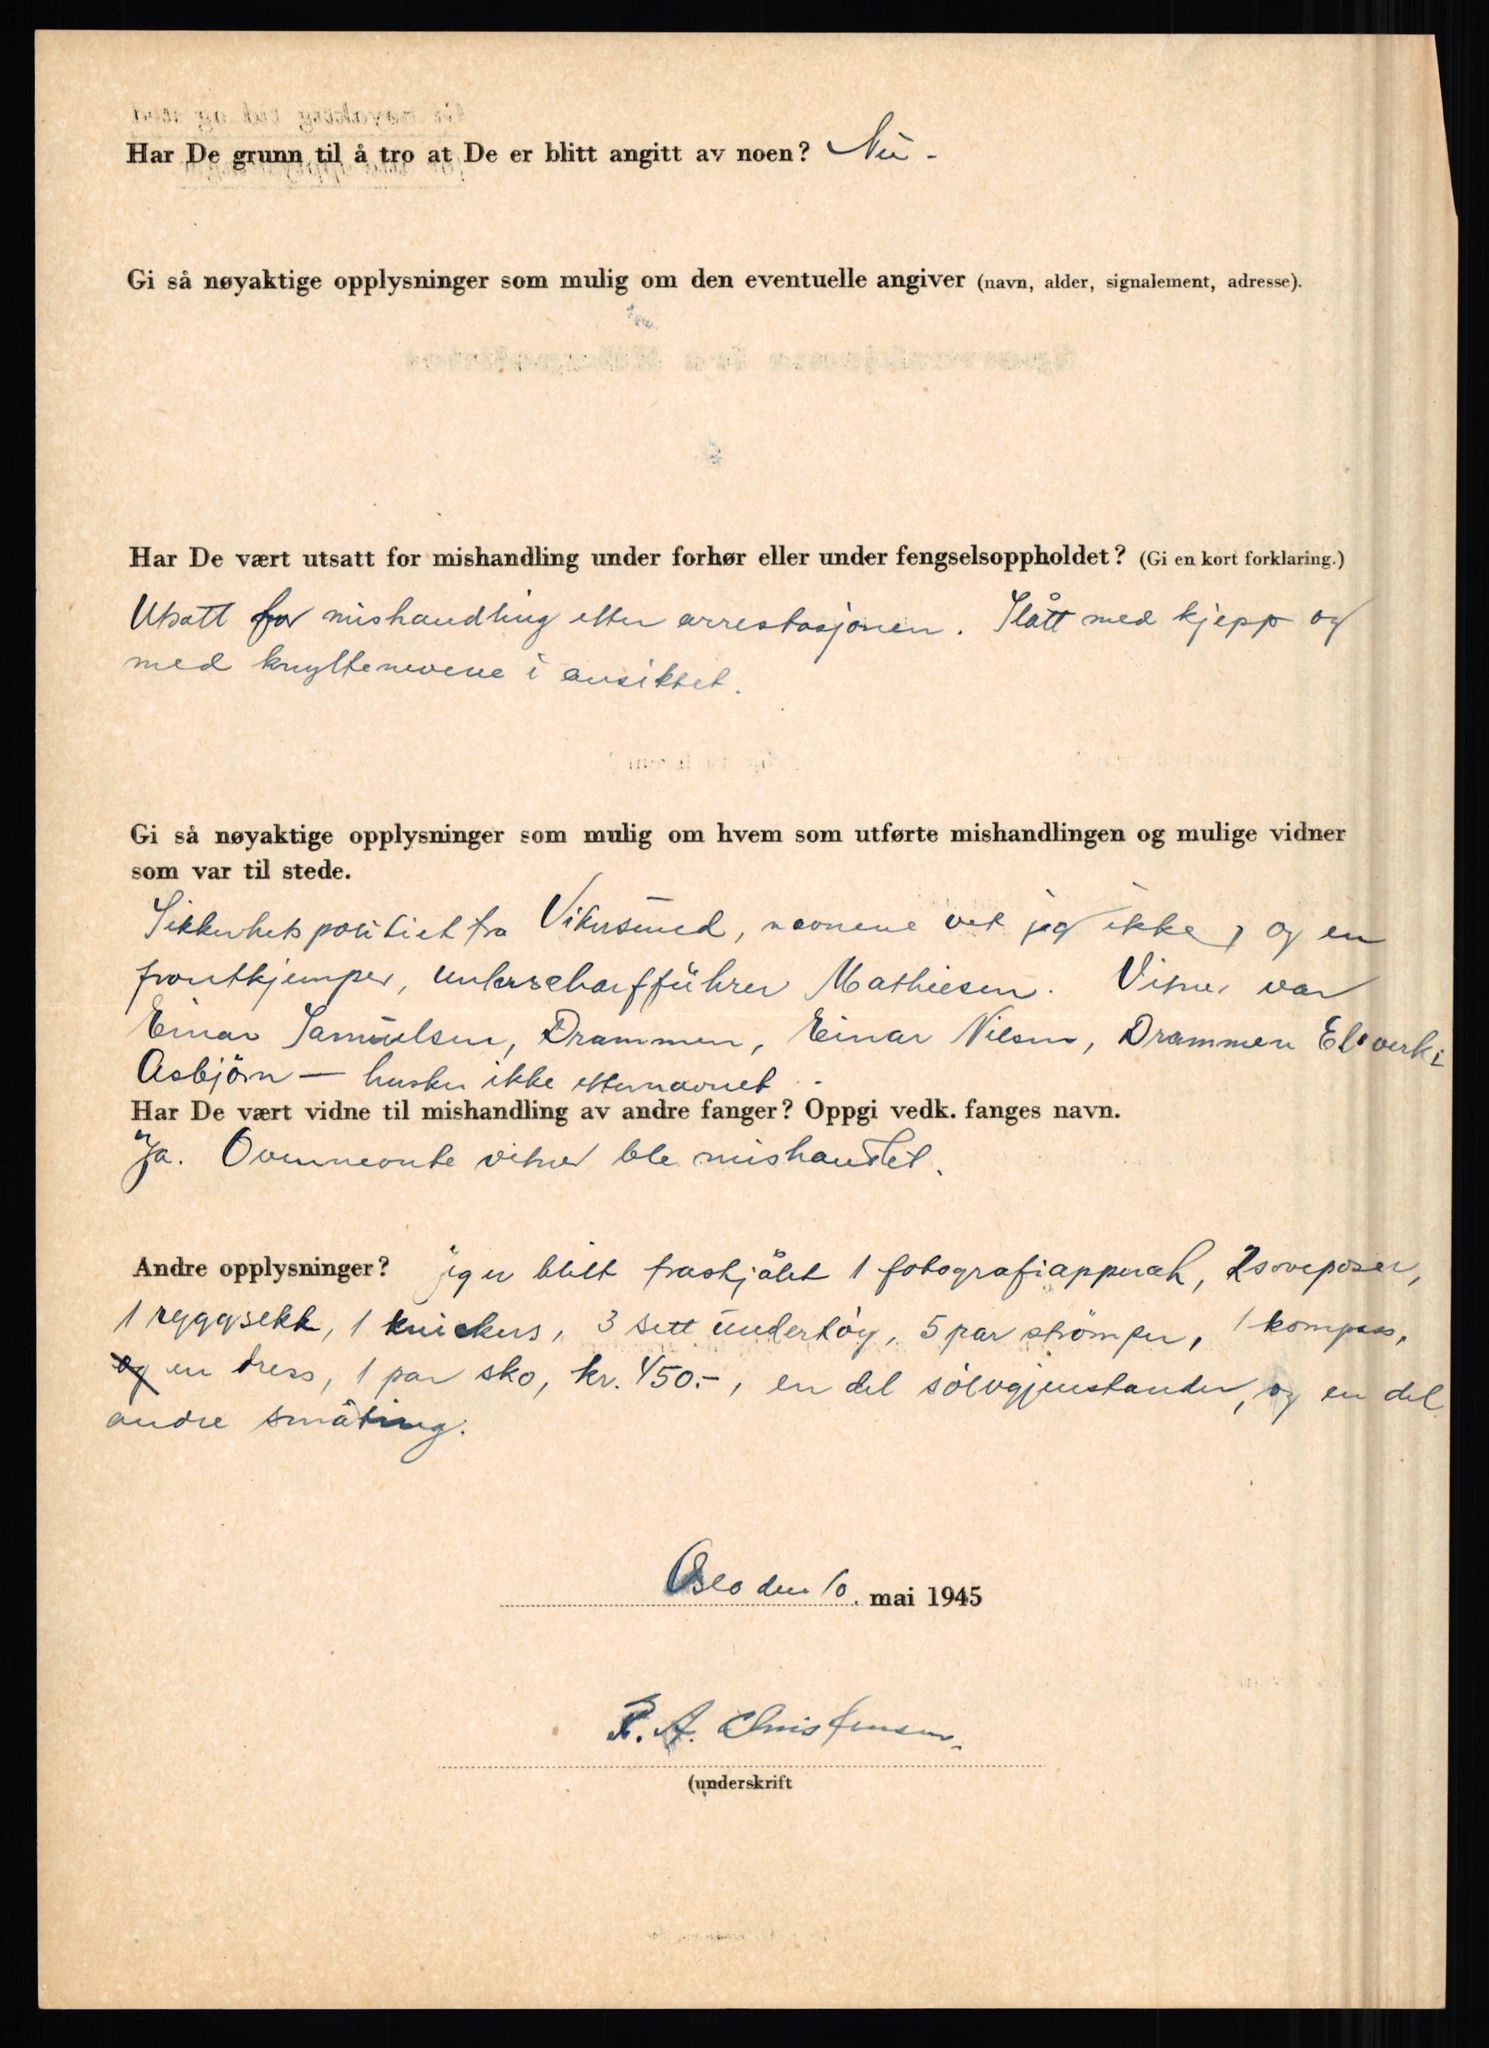 Har De grunn til å tro at De er blitt angitt av noen? Nei -
Gi så nøyaktige opplysninger som mulig om den eventuelle angiver (navn, alder, signalement, adresse).
Har De vært utsatt for mishandling under forhør eller under fengselsoppholdet? (Gi en kort forklaring.)
Utsatt for mishandling etter arrestasjonen. Slått med kjepp og
med knyttenevene i ansiktet.
Gi så nøyaktige opplysninger som mulig om hvem som utførte mishandlingen og mulige vidner
som var til stede.
Sikkerhetspolitiet fra Vikersund, navnene vet jeg ikke, og en
frontkjemper, unterscharfführer Mathiesen. Vitner var
Einar Samuelsen, Drammen, Einar Nilsen, Drammen Elverk,
Asbjörn — husker ikke etternavnet.
Har De vært vidne til mishandling av andre fanger? Oppgi vedk. fanges navn.
Ja. Ovennevnte vitner ble mishandlet.
Andre opplysninger? jeg er blitt frastjålet 1 fotografiapperat, 2 soveposer,
1 ryggsekk, 1 knickers, 3 sett undertöy, 5 par strömper, 1 kompass,
og en dress, 1 par sko, kr. 450.-, en del sölvgjenstander, og en del
andre småting.
Oslo den 10. mai 1945
A. Christensen.
(underskrift